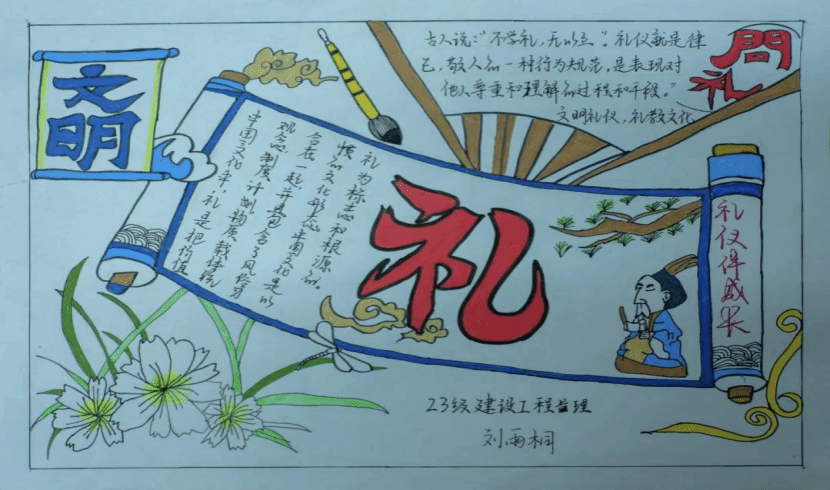 文明
古人说:"不学礼,无以立"。礼仪就是律
己,敬人的一种行为规范,是表现对
他人尊重和理解的过程和手段。"
文明礼仪,礼教文化
問礼
中国文化中,礼是把价值
观念,制度,计划物质载体统
合在一起,并且包含了风俗
的文化形态,中国文化是以
礼为标志和根源的。
礼
礼仪伴成长
23级建设工程监理
刘雨桐